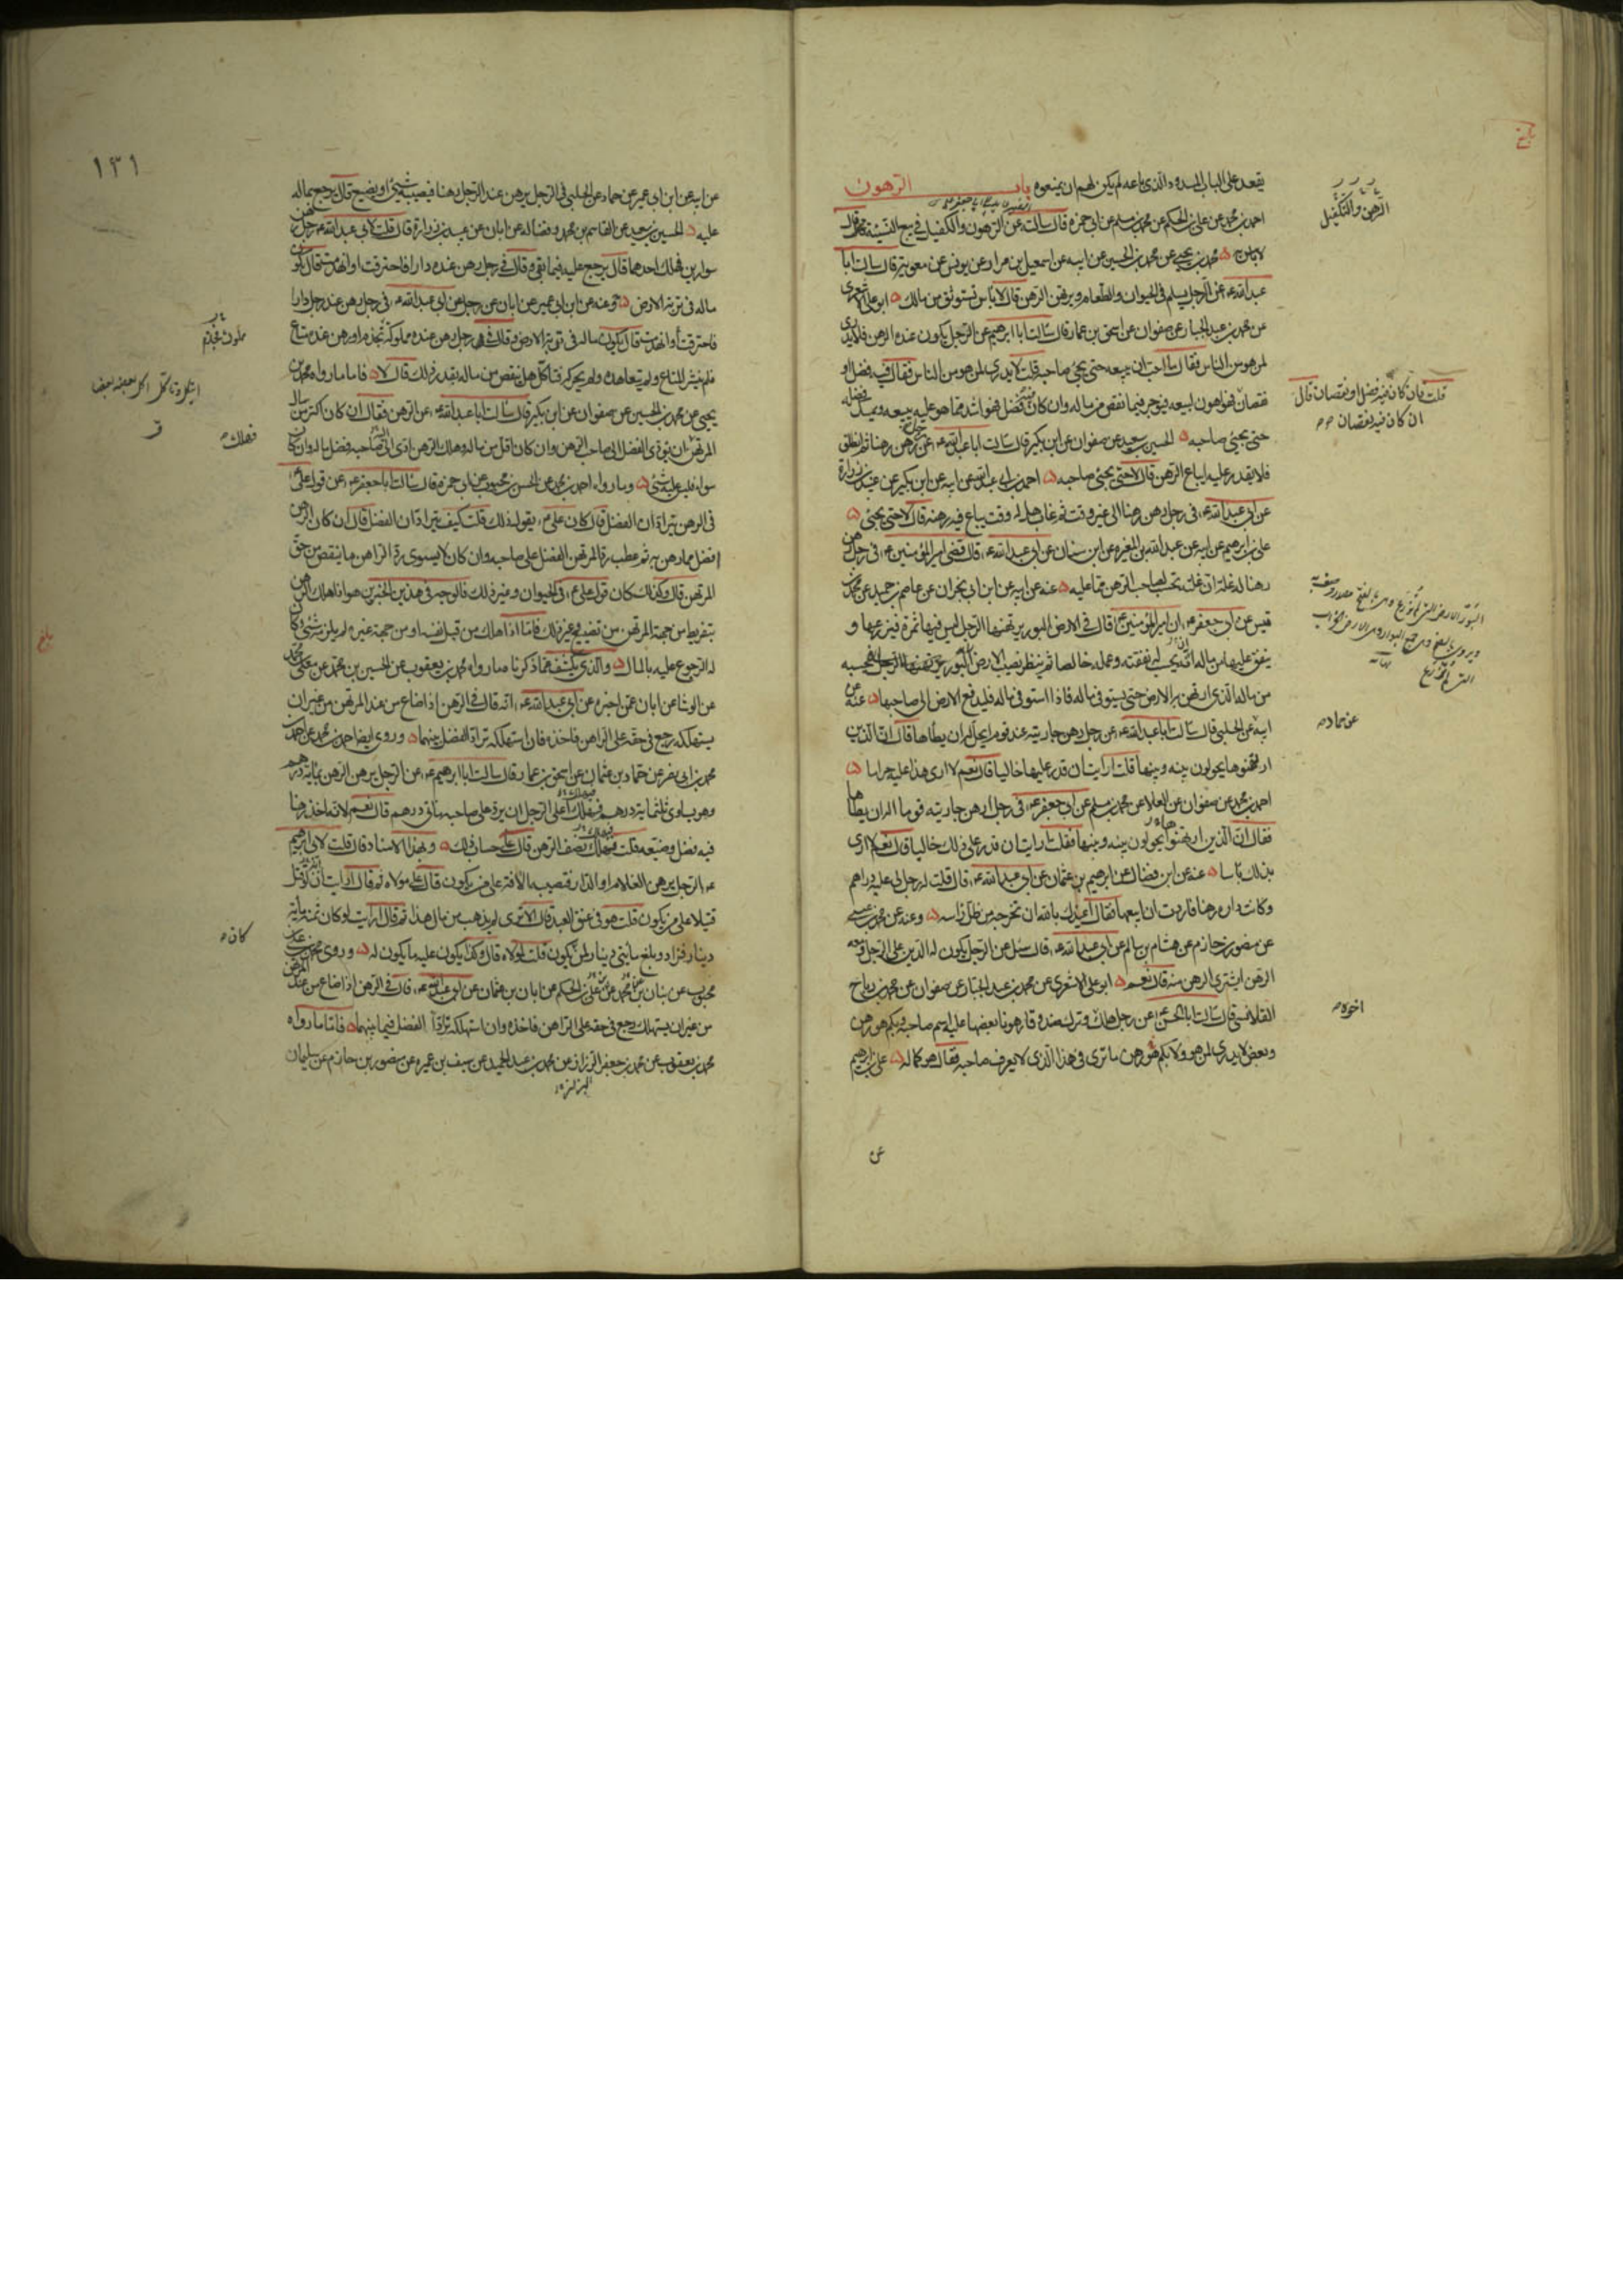 يقعد على الباب المسدود الذى باعه لم يكن لهم ان يمنعوه باب الرهون
احمد بن محمد عن على بن الحكم عن محمد بن مسلم عن ابى حمزة قال سالت عن الرهون والكفيل فى بيع النسيئة فقال
لا باس به محمد بن يحيى عن محمد بن الحسين عن اسمعيل بن مرار عن يونس عن معوية قال سالت ابا
عبد الله ع عن الرجل يسلم فى الحيوان والطعام ويرتهن الرهن قال لا باس تستوثق من مالك ابو على الاشعرى
عن محمد بن عبد الجبار عن صفوان عن اسحق بن عمار قال سالت ابا ابرهيم عن الرجل يكون عنده الرهن فلا يدرى
لمن هو من الناس فقال لا احب ان يبيعه حتى يجئ صاحبه قلت لا يدرى لمن هو من الناس فقال فيه فضل او
نقصان فهو اهون لبيعه فيؤجر فيما نقص من ماله وان كان فيه فضل فهو اشد مما هو عليه يبيعه ويمسك فضله
حتى يجئ صاحبه الحسين بن سعيد عن صفوان عن ابن بكير قال سالت ابا عبد الله ع عن رجل رهن رهنا ثم انطلق
فلا يقدر عليه ايباع الرهن قال لا حتى يجئ صاحبه احمد بن ابى عبد الله عن ابيه عن ابن بكير عن عبيد بن زرارة
عن ابى عبد الله ع فى رجل رهن رهنا الى غير وقت ثم غاب هل له وقت يباع فيه رهنه قال لا حتى يجئ
على بن ابرهيم عن ابيه عن عبد الله بن المغيرة عن ابن سنان عن ابى عبد الله ع قال قضى امير المؤمنين ع فى رجل رهن
رهنا له غلة ان غلته تحسب لصاحب الرهن مما عليه عنه عن ابيه عن ابن ابى نجران عن عاصم بن حميد عن محمد بن
قيس عن ابى جعفر ع ان امير المؤمنين ع قال فى الارض البور يرتهنها الرجل ليس فيها ثمرة فيزرعها و
ينفق عليها من ماله انه يحتسب له نفقته وعمله خالصا ثم ينظر نصيب الارض فيحسبه
من ماله الذى ارتهن به الارض حتى يستوفى ماله فاذا استوفى ماله فليدفع الارض الى صاحبها عنه عن
ابيه عن الحلبى قال سالت ابا عبد الله ع عن رجل رهن جاريته عند قوم ايحل له ان يطأها قال ان الذين
ارتهنوها يحولون بينه وبينها قلت ارايت ان قدر عليها خاليا قال نعم لا ارى هذا عليه حراما
احمد بن محمد عن صفوان عن العلا عن محمد بن مسلم عن ابى جعفر ع فى رجل رهن جاريته قوما اله ان يطاها
فقال ان الذين ارتهنوها يحولون بينه وبينها فقلت ارايت ان قدر على ذلك خاليا قال نعم لا ارى
بذلك باسا عنه عن ابن فضال عن ابرهيم بن عثمان عن ابى عبد الله ع قال قلت له رجل لى عليه دراهم
وكانت داره رهنا فاردت ان ابيعها فقال اعيذك بالله ان تخرجه من ظل راسه وعنه عن محمد بن عيسى
عن منصور بن حازم عن هشام بن سالم عن ابى عبد الله ع قال سئل عن الرجل يكون له الدين على الرجل ومعه
الرهن ايشترى الرهن منه قال نعم ابو على الاشعرى عن محمد بن عبد الجبار عن صفوان عن محمد بن رياح
القلانسى قال سالت ابا الحسن ع عن رجل هلك وترك صندوقا رهونا بعضها عليه اسم صاحبه وبكم هو رهن
وبعض لا يدرى لمن هو ولا بكم هو رهن ما ترى فى هذا الذى لا يعرف صاحبه فقال هو كماله على بن ابرهيم
عن
الرهن والكفيل
قلت فان كان فيه فضل او نقصان قال
ان كان فيه نقصان
عن حماد
اخوه
١٣١
عن ابيه عن ابن ابى عمير عن حماد عن الحلبى فى الرجل يرهن عند الرجل رهنا فيصيبه شئ او يضيع قال يرجع بماله
عليه الحسين بن سعيد عن القاسم بن محمد وفضالة عن ابان عن عبيد بن زرارة قال قلت لابى عبد الله ع رجل رهن
سوارين فهلك احدهما قال يرجع عليه فيما بقى وقال فى رجل رهن عنده دارا فاحترقت او انهدمت قال يكون
ماله فى تربة الارض وعنه عن ابن ابى عمير عن ابان عن رجل عن ابى عبد الله ع فى رجل رهن عند رجل دارا
فاحترقت او انهدمت قال يكون ماله فى تربة الارض وقال فى رجل رهن عنده مملوكه فجذم او رهن عنده متاع
فلم ينشر المتاع ولم يتعاهده ولم يحركه فتاكل هل ينقص من ماله بقدر ذلك قال لا فاما ما رواه محمد بن
يحيى عن محمد بن الحسين عن صفوان عن ابن بكير قال سالت ابا عبد الله ع عن الرهن فقال ان كان اكثر من مال
المرتهن ان يؤدى الفضل الى صاحب الرهن وان كان اقل من ماله وهلك الرهن ادى الى صاحبه فضل ماله وان كان
سواء فليس عليه شئ وما رواه احمد بن محمد عن الحسن بن محبوب عن ابى حمزة قال سالت ابا جعفر ع عن قول على ع
فى الرهن يترادان الفضل قال كان على ع يقول ذلك قلت كيف يترادان الفضل قال ان كان الرهن
افضل مما رهن به ثم عطب رد المرتهن الفضل على صاحبه وان كان لا يسوى رد الراهن ما ينقص من حق
المرتهن قال وكذلك كان قول على ع فى الحيوان وغير ذلك فالوجه فى هذين الخبرين هو انه اذا هلك الرهن
بتفريط من جهة المرتهن من تضييع وغير ذلك فاما اذا هلك من قبل نفسه او من جهة غيره لم يلزمه شئ وكان
له الرجوع عليه بالمال والذى يكشف عما ذكرنا ما رواه محمد بن يعقوب عن الحسين بن محمد عن معلى بن محمد
عن الوشا عن ابان عمن اخبره عن ابى عبد الله ع انه قال فى الرهن اذا ضاع من عند المرتهن من غير ان
يستهلكه رجع فى حقه على الراهن فاخذه فان استهلكه تراد الفضل بينهما وروى ايضا احمد بن محمد عن احمد بن
محمد بن ابى نصر عن حماد بن عثمان عن اسحق بن عمار قال سالت ابا ابرهيم ع عن الرجل يرهن الرهن بماية درهم
وهو يساوى ثلثماية درهم فيهلك اعلى الرجل ان يرد على صاحبه مائتى درهم قال نعم لانه اخذ رهنا
فيه فضل وضيعه قلت فهلك نصف الرهن قال على حساب ذلك وبهذا الاسناد قال قلت لابى ابرهيم
ع الرجل يرهن الغلام او الدار فتصيبه الآفة على من يكون قال على مولاه ثم قال ارايت لو قتل
قتيلا على من يكون قلت هو فى عنق العبد قال الا ترى لم يذهب من مال هذا ثم قال ارايت لو كان ثمنه ماية
دينار فزاد وبلغ مأيتى دينار لمن يكون قلت لمولاه قال وكذا يكون عليه ما يكون له وروى محمد بن على بن
محبوب عن بنان بن محمد عن على بن الحكم عن ابان بن عثمان عن ابى عبد الله ع قال فى الرهن اذا ضاع من عند المرتهن
من غير ان يستهلكه رجع فى حقه على الراهن فاخذه وان استهلكه تراد الفضل فيما بينهما فاما ما رواه
محمد بن يعقوب عن محمد بن جعفر الرزاز عن محمد بن عبد الحميد عن سيف بن عميرة عن منصور بن حازم عن سليمان
فهلك
كان
بلغ